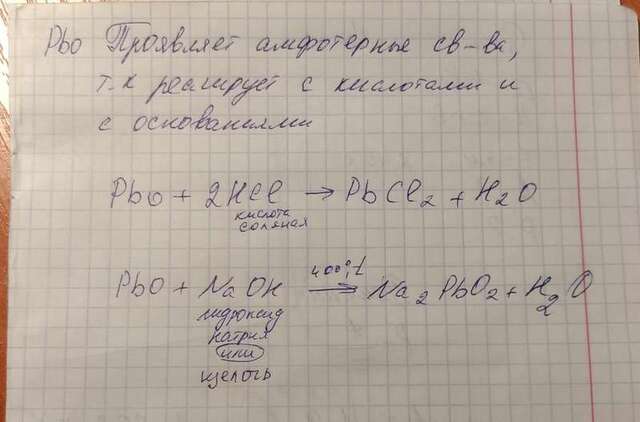 PbO Проявляет амфотерные св-ва,
т.к реагирует с кислотами и
с основаниями
PbO + 2HCl → PbCl2 + H2O
кислота
соляная
400°, t
PbO + NaOH → Na2PbO2 + H2O
гидроксид
натрия
или
щелочь